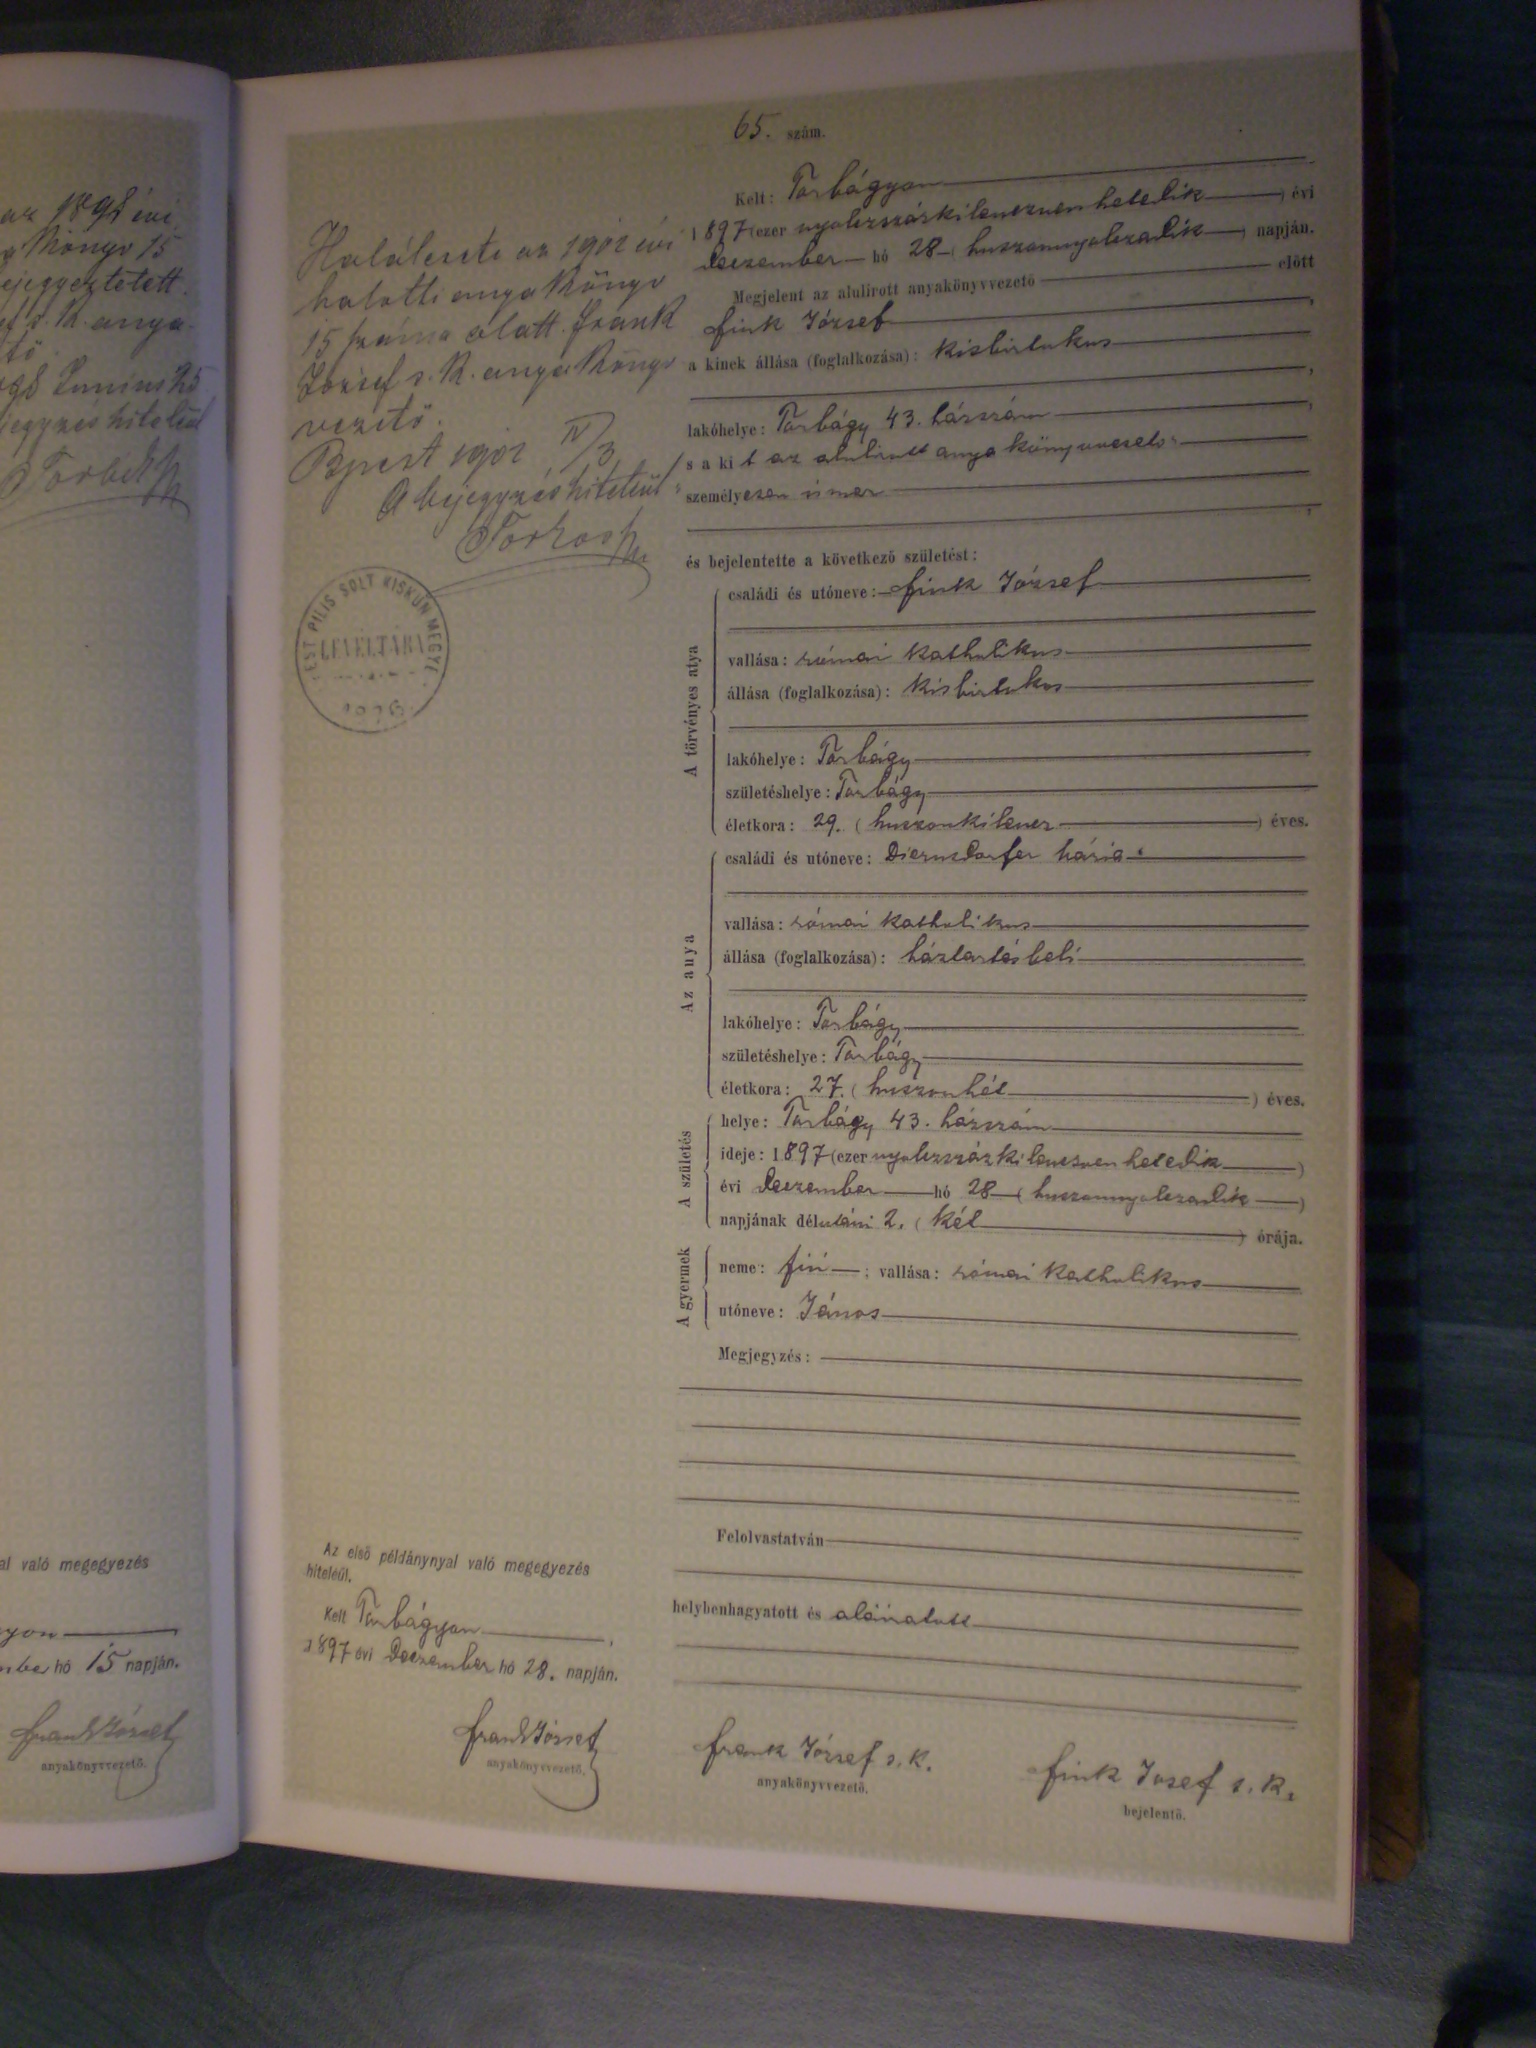 65. szám.
Kelt: Torbágyon
1897 (ezer nyolczszázkilenczvenhetedik) évi
Deczember hó 28 (huszonnyolczadik) napján.
Megjelent az alulirott anyakönyvvezető előtt
Fink József,
a kinek állása (foglalkozása): kisbirtokos
,
lakóhelye: Torbágy 43. házszám,
s a kit az alulirott anyakönyvvezető
személyesen ismer
,
és bejelentette a következő születést:
A törvényes atya
családi és utóneve: Fink József
vallása: római katholikus
állása (foglalkozása): kisbirtokos
lakóhelye: Torbágy
születéshelye: Torbágy
életkora: 29. (huszonkilencz) éves.
Az anya
családi és utóneve: Mária
vallása: római katholikus
állása (foglalkozása): háztartásbeli
lakóhelye: Torbágy
születéshelye: Torbágy
életkora: 27. (huszonhét) éves.
A születés
helye: Torbágy 43. házszám
ideje: 1897 (ezer nyolczszázkilenczvenhetedik)
évi Deczember hó 28 (huszonnyolczadik)
napjának délutáni 2. (két) órája.
A gyermek
neme: fiú; vallása: római katholikus
utóneve: János
Megjegyzés:
Felolvastatván
helybenhagyatott és aláiratott
Frank József s. k.
anyakönyvvezető.
Fink József s. k.
bejelentő.
Halálesete az 1902 évi
halotti anyakönyv
15 száma alatt. Frank
József s. k. anyakönyv
vezető.
Bpest 1902 IV/3
A bejegyzés hiteléül:
PEST PILIS SOLT KISKUN MEGYE
LEVÉLTÁRA
Az első példánynyal való megegyezés
hiteléül.
Kelt Torbágyon,
1897 évi Deczember hó 28. napján.
Frank József
anyakönyvvezető.
az 1898 évi
könyv 15
ejegyeztetett.
ef s. k. anya-
tő.
Junius 25
jegyzés hiteléül
al való megegyezés
gyon
mber hó 15 napján.
Frank József
anyakönyvvezető.